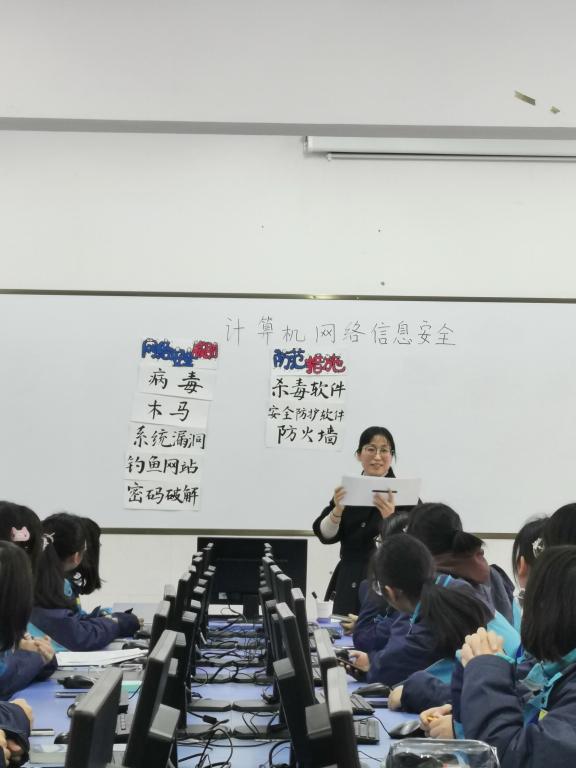 计算机网络信息安全
网络安全
病毒
木马
系统漏洞
钓鱼网站
密码破解
防范措施
杀毒软件
安全防护软件
防火墙